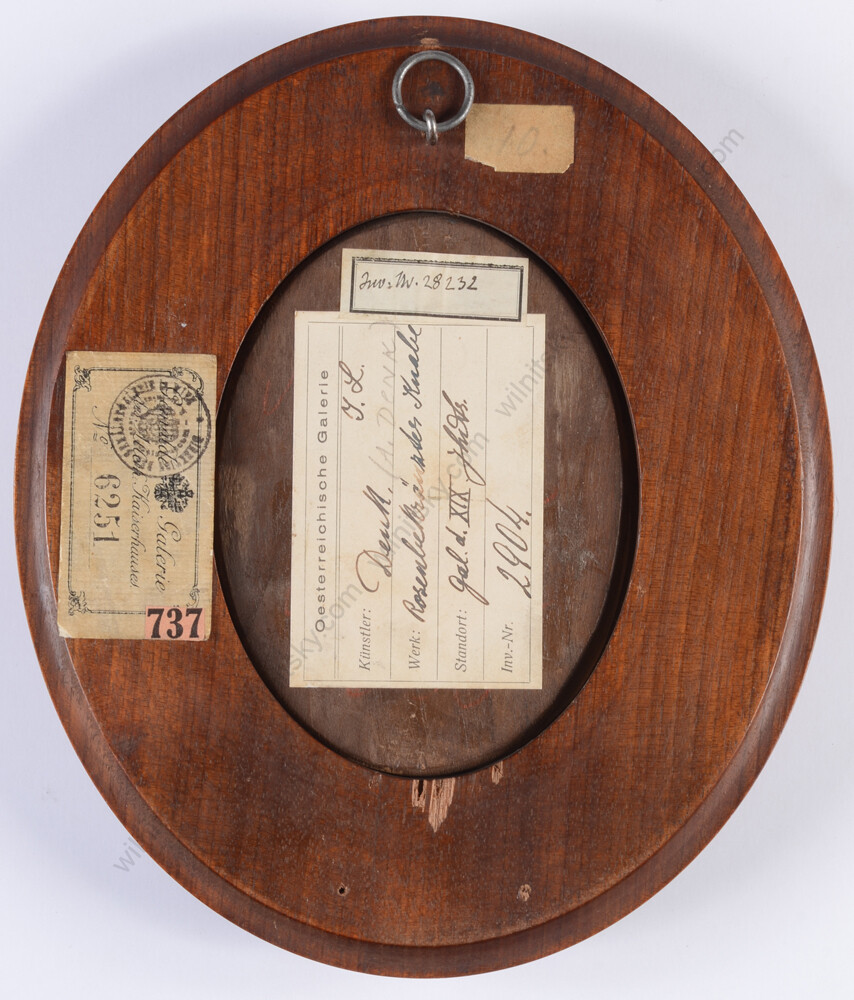 10.
Inv: Nr. 28232
Oesterreichische Galerie
J. L.
Künstler: Denk (A. DENK)
Werk: Rosenbekränzter Knabe
Standort: Gal. d. XIX Jhdts.
Inv.-Nr. 2904.
Galerie
Kaiserhauses
No 6251
737
wilnitsky.com